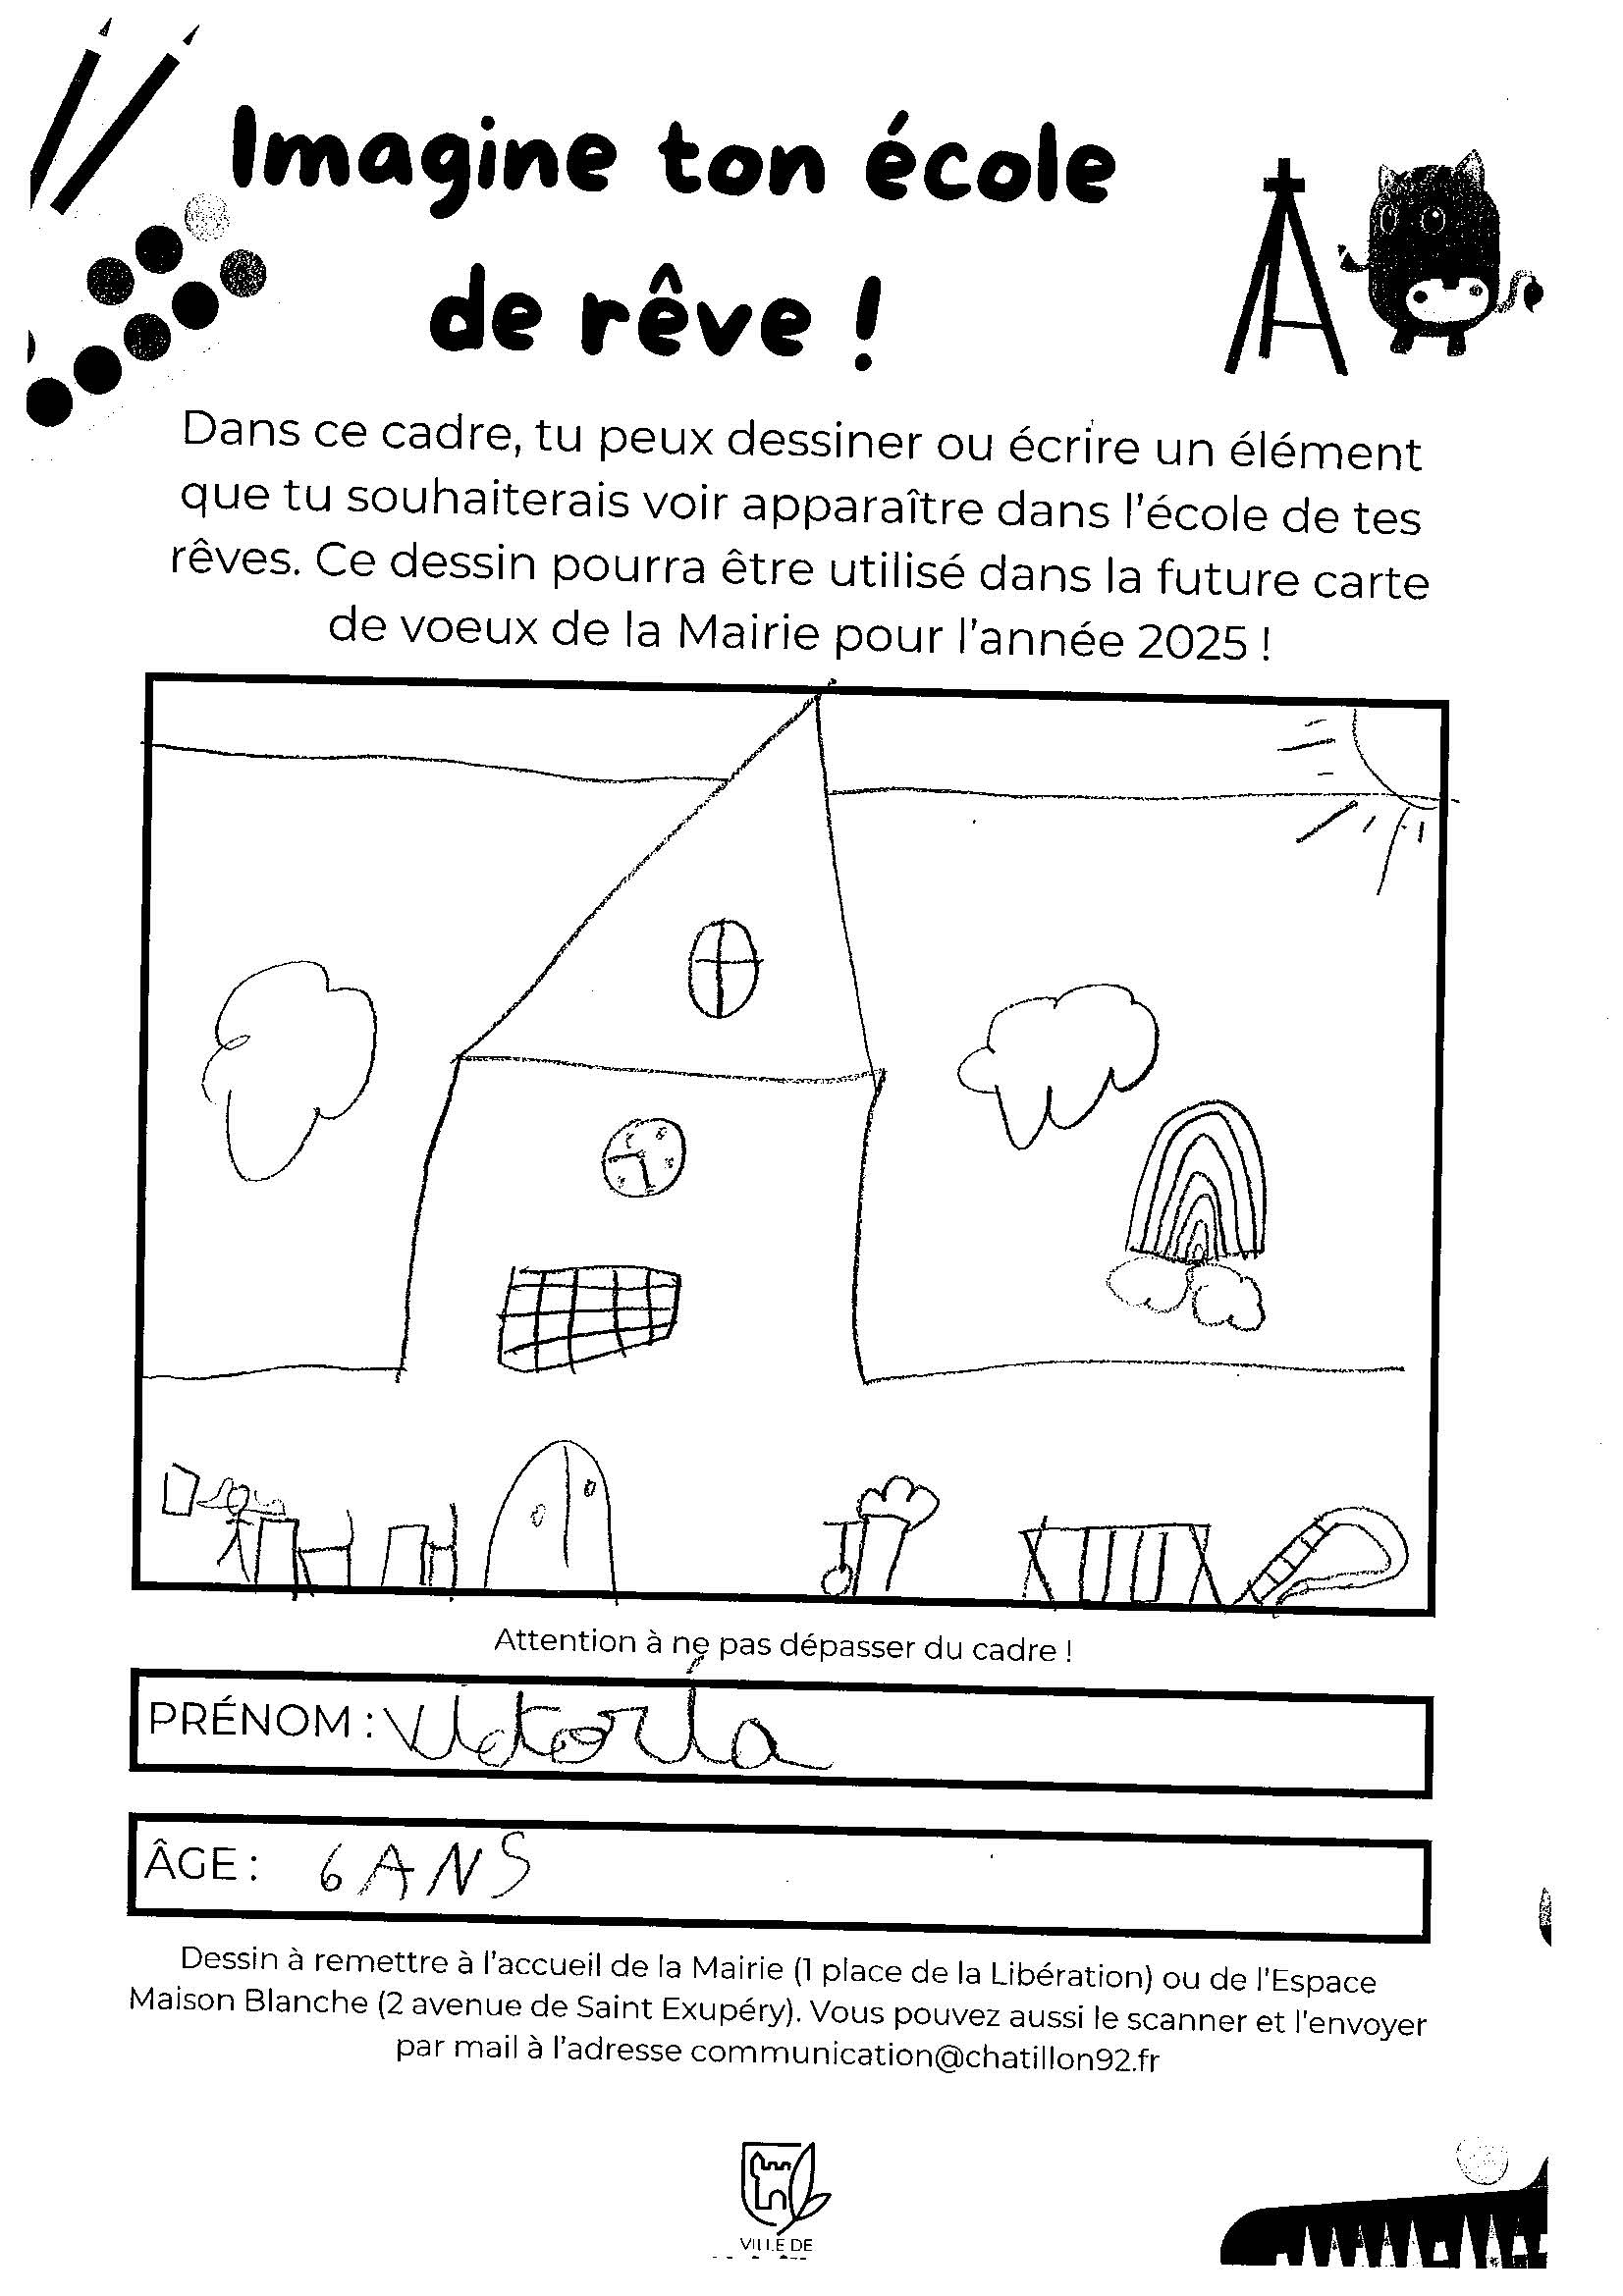 Imagine ton école
de rêve !
Dans ce cadre, tu peux dessiner ou écrire un élément
que tu souhaiterais voir apparaître dans l'école de tes
rêves. Ce dessin pourra être utilisé dans la future carte
de voeux de la Mairie pour l'année 2025 !
Attention à ne pas dépasser du cadre !
PRÉNOM : Victoria
ÂGE : 6 ANS
Dessin à remettre à l'accueil de la Mairie (1 place de la Libération) ou de l'Espace
Maison Blanche (2 avenue de Saint Exupéry). Vous pouvez aussi le scanner et l'envoyer
par mail à l'adresse communication@chatillon92.fr
VILLE DE